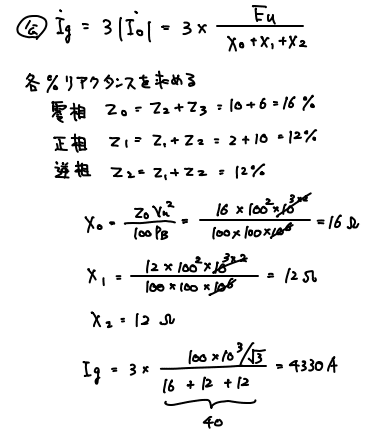 İg = 3|İ0| = 3 × Eu / (X0 + X1 + X2)
各%リアクタンスを求める
零相 Z0 = Z2 + Z3 = 10 + 6 = 16 %
正相 Z1 = Z1 + Z2 = 2 + 10 = 12%
逆相 Z2 = Z1 + Z2 = 12%
X0 = Z0 Vn² / 100 PB = 16 × 100² × 10³ˣ² / 100 × 100 × 10⁶ = 16 Ω
X1 = 12 × 100² × 10³ˣ² / 100 × 100 × 10⁶ = 12 Ω
X2 = 12 Ω
Ig = 3 × 100 × 10³/√3 / (16 + 12 + 12) = 4330 A
40